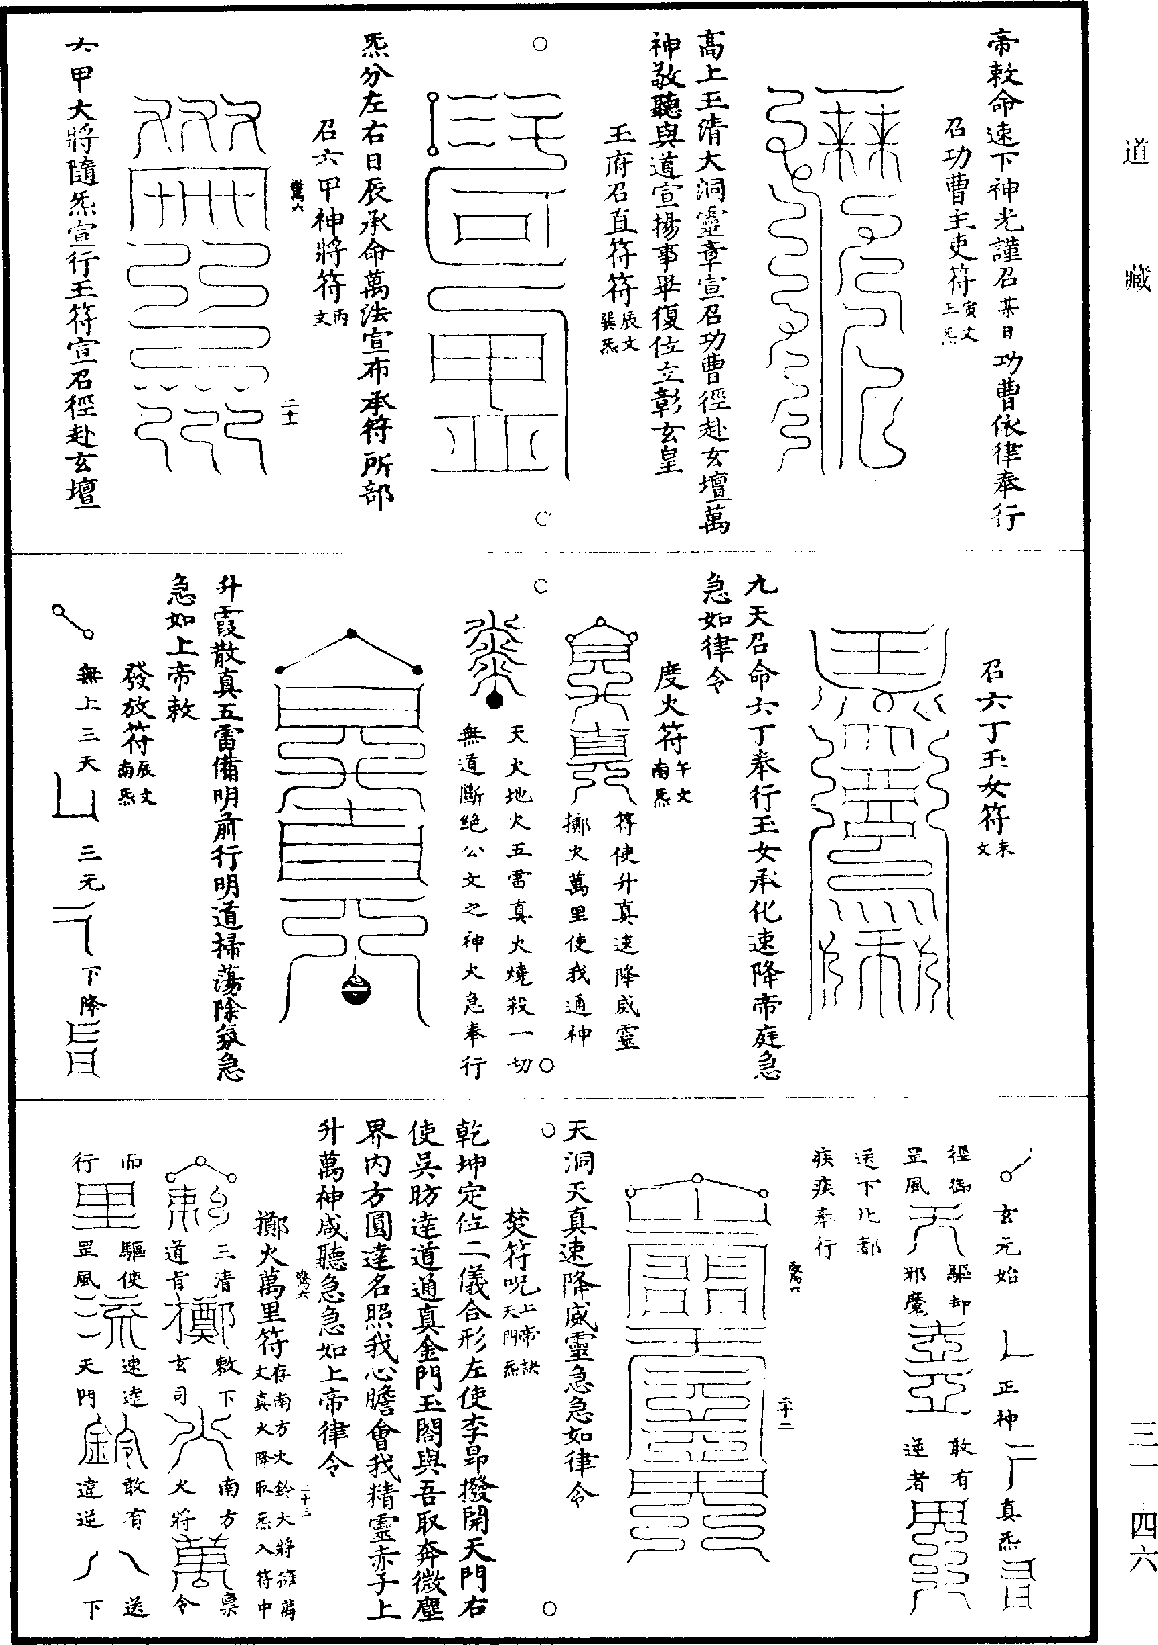 道藏
三一 四六
帝敕命速下神光謹召某日功曹依律奉行
召功曹主吏符寅文三炁
高上玉清大洞靈章宣召功曹徑赴玄壇萬
神敬聽與道宣揚事畢復位立彰玄皇
玉府召直符符辰文巽炁
炁分左右日辰承命萬法宣布承符所部
召六甲神將符丙文
六甲大將隨炁宣行玉符宣召徑赴玄壇
二十一
召六丁玉女符未文
九天召命六丁奉行玉女承化速降帝庭急
急如律令
度火符午文南炁
符使升真速降威靈
擲火萬里使我通神
天火地火五雷真火燒殺一切
無道斷絕公文之神火急奉行
升霞散真五雷備明前行明道掃蕩除氛急
急如上帝敕
發放符辰文南炁
無上三天 三元 下降
玄元始 正神 真炁
徑御 驅却 敢有
罡風 邪魔 逆者
送下北都
疾疾奉行
二十二
天洞天真速降威靈急急如律令
焚符呪上帝訣天門炁
乾坤定位二儀合形左使李昴撥開天門右
使吳昉達道通真金門玉閣與吾取奔微塵
界內方圓達名照我心瞻會我精靈赤子上
升萬神咸聽急急如上帝律令
二十三
擲火萬里符存南方火鈴大將
文真火降取炁入符中
三清 敕下 南方
道肯 玄司 火將 令
而 驅使 速達 敢有 送
行 罡風 天門 違逆 下